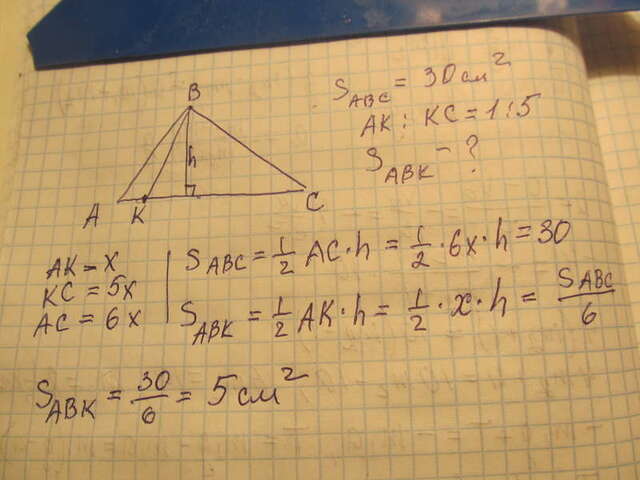 S_ABC = 30 см²
AK : KC = 1 : 5
S_ABK - ?
B
h
A K C
AK - x
KC = 5x
AC = 6x
S_ABC = 1/2 AC · h = 1/2 · 6x · h = 30
S_ABK = 1/2 AK · h = 1/2 · x · h = S_ABC/6
S_ABK = 30/6 = 5 см²